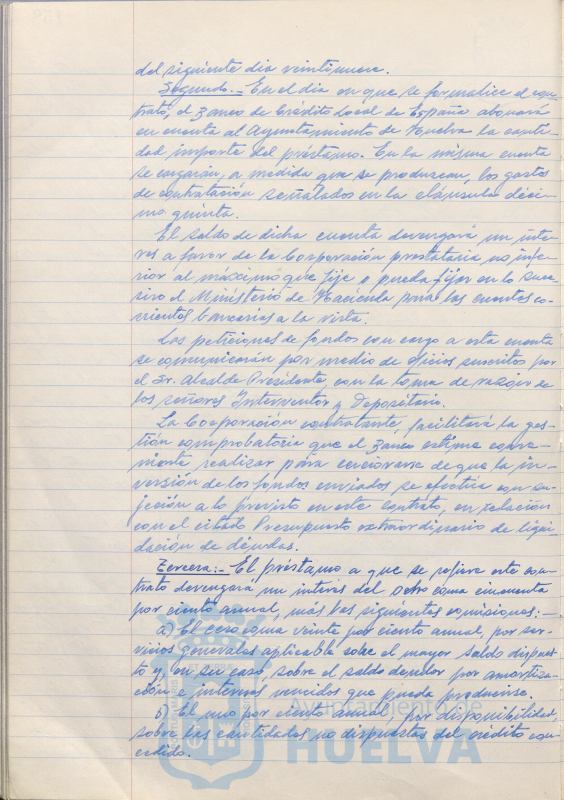 del siguiente dia veintinueve.
Segundo.- En el dia en que se formalice el con-
trato, el Banco de Crédito Local de España abonará
en cuenta al Ayuntamiento de Huelva la canti-
dad, importe del préstamo. En la misma cuenta
se cargarán, a medida que se produzcan, los gastos
de contratación señalados en la cláusula déci-
mo quinta.
El saldo de dicha cuenta devengará un inte-
rés a favor de la Corporación prestataria no infe-
rior al máximo que fije o pueda fijar en lo suce-
sivo el Ministerio de Hacienda para las cuentas co-
rrientes bancarias a la vista.
Las peticiones de fondos con cargo a esta cuenta
se comunicarán por medio de oficios suscritos por
el Sr. Alcalde Presidente, con la toma de razón de
los señores Interventor y Depositario.
La Corporación contratante, facilitará la ges-
tión comprobatoria que el Banco estime conve-
niente realizar para cerciorarse de que la in-
versión de los fondos enviados se efectúa con su-
jección a lo previsto en este contrato, en relación
con el citado Presupuesto extraordinario de liqui-
dación de déudas.
Tercera:- El préstamo a que se refiere este con-
trato devengará un interés del ocho coma cincuenta
por ciento anual, más las siguientes comisiones:-
a) El cero coma veinte por ciento anual, por ser-
vicios generales aplicable sobre el mayor saldo dispues-
to y, en su caso, sobre el saldo deudor por amortiza-
ción e intereses vencidos que pueda producirse.
b) El uno por ciento anual, por disponibilidad,
sobre las cantidades no dispuestas del crédito con-
cedido.
Ayuntamiento de
HUELVA